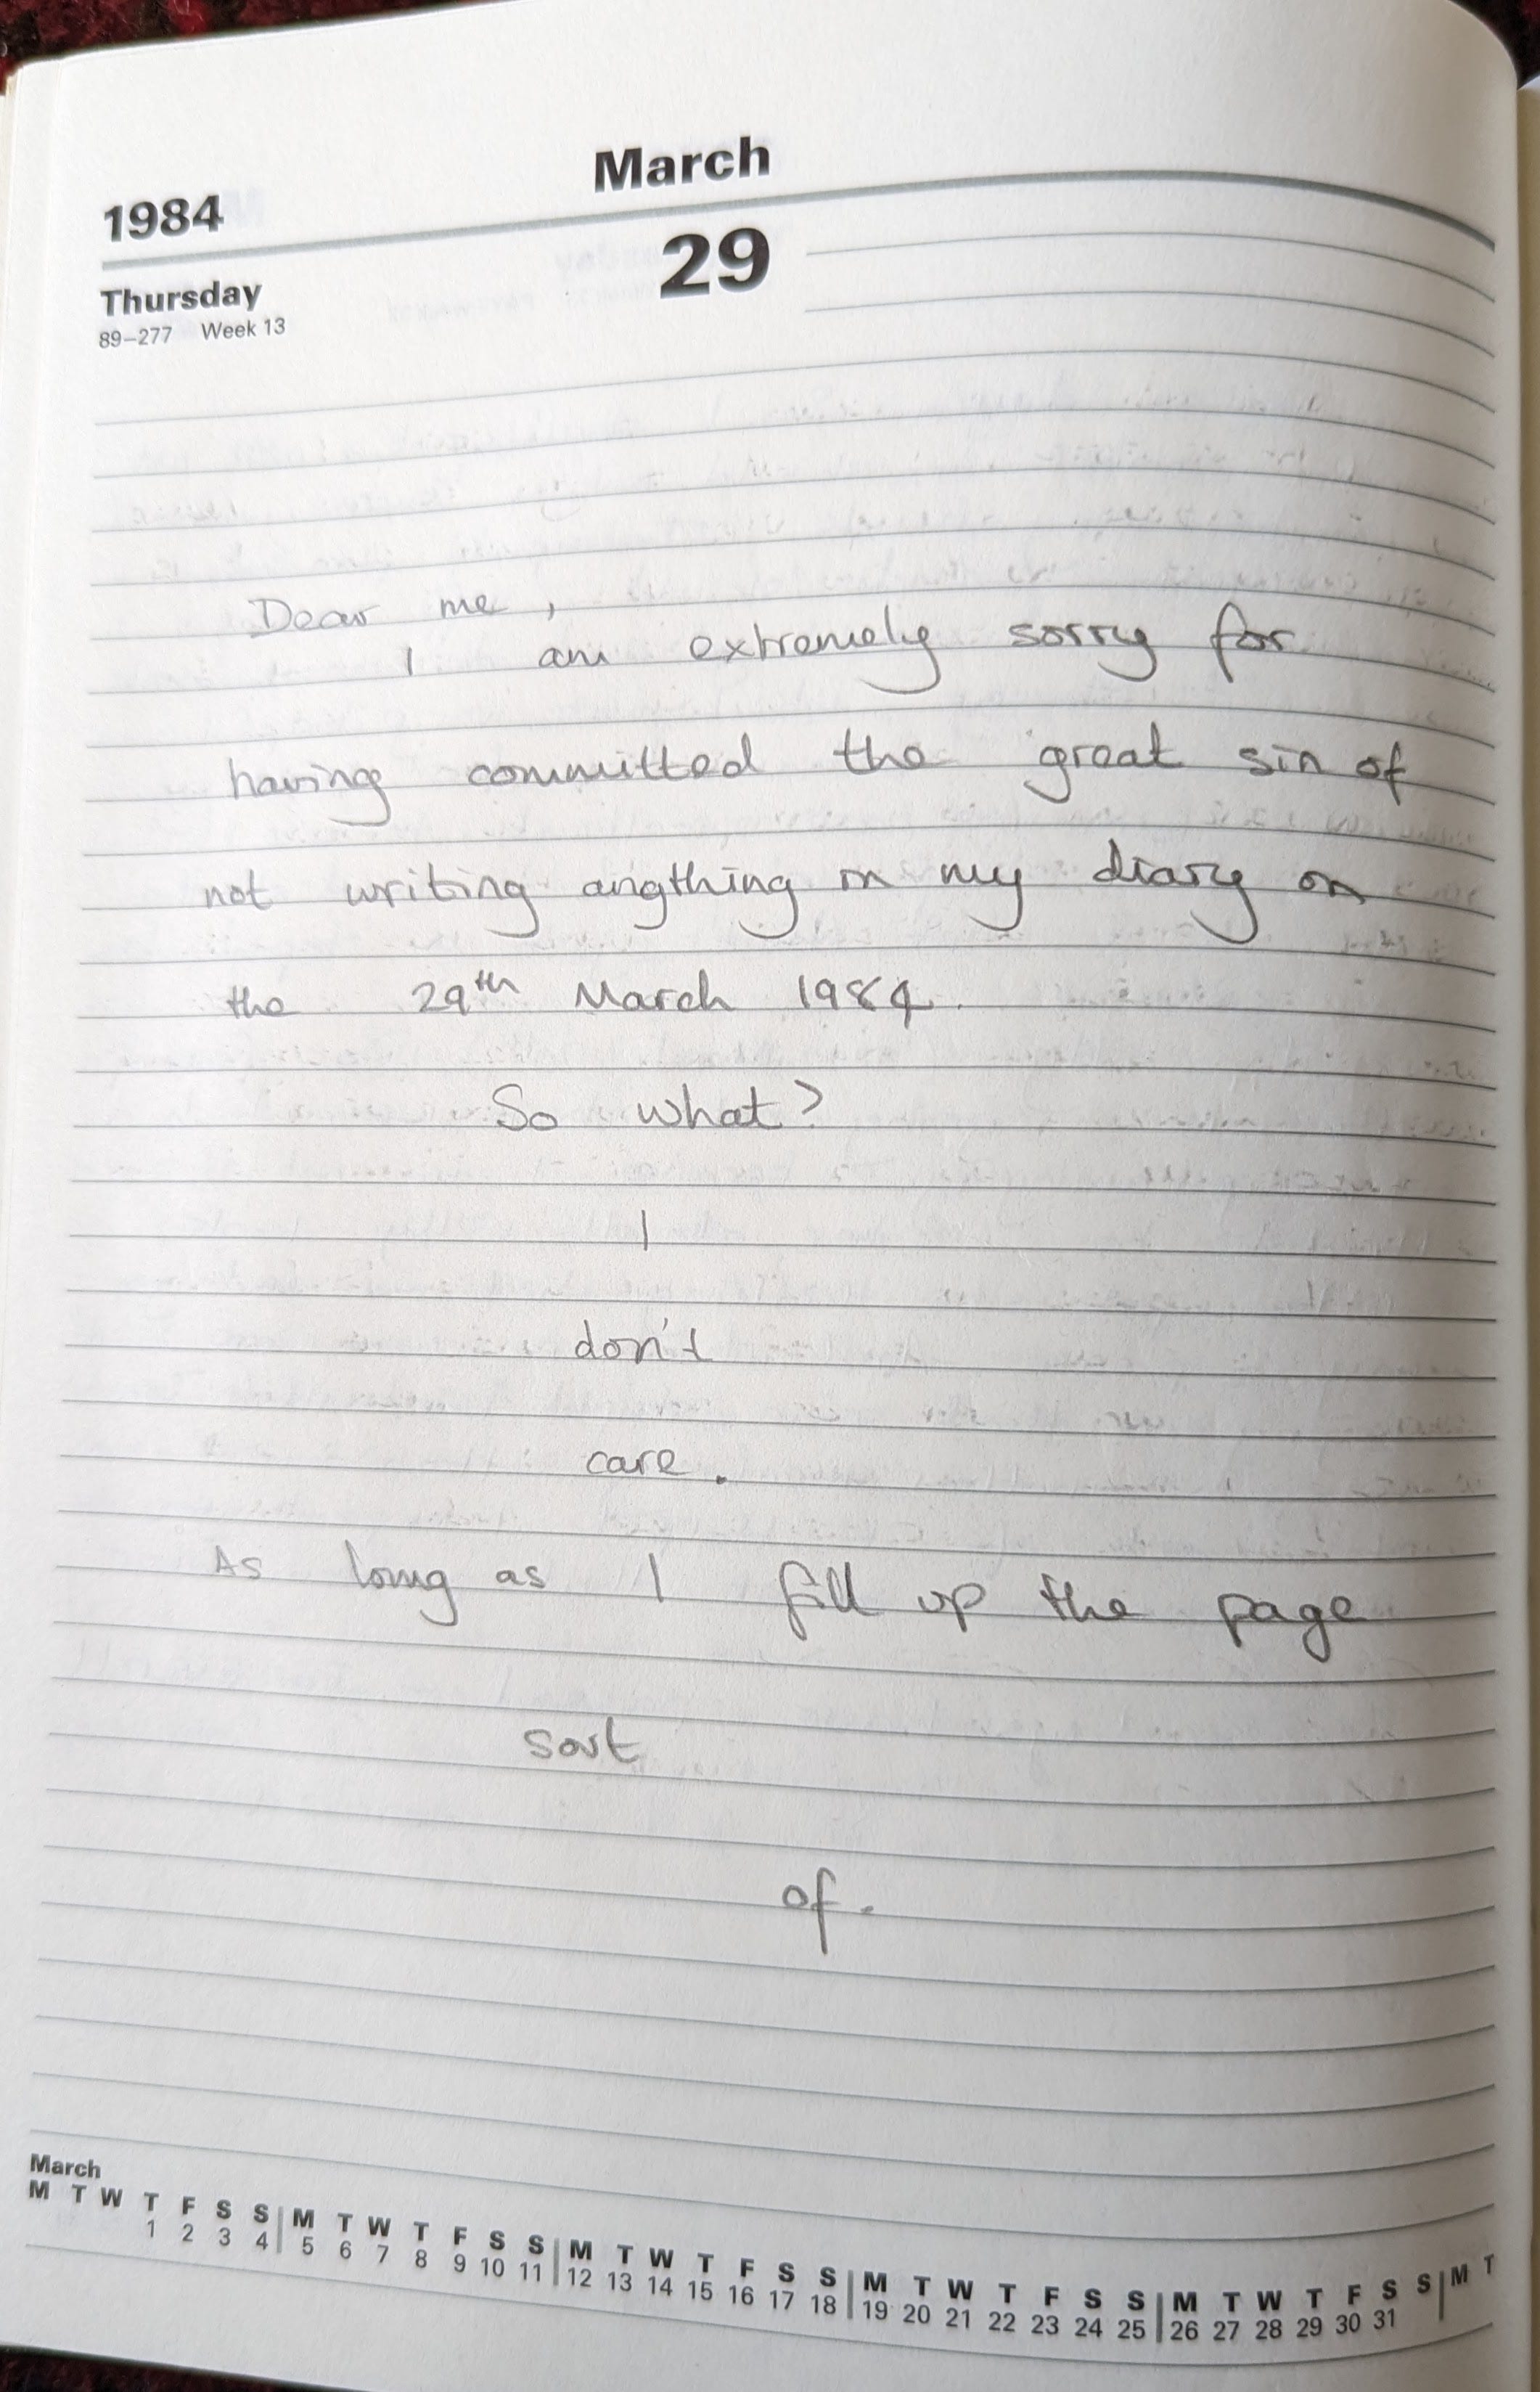 March
1984
29
Thursday
89–277 Week 13
Dear me,
I am extremely sorry for
having committed the great sin of
not writing anything in my diary on
the 29th March 1984.
So what?
I
don't
care.
As long as I fill up the page
sort
of.
March
M T W T F S S M T W T F S S M T W T F S S M T W T F S S M T W T F S S M T
1 2 3 4 5 6 7 8 9 10 11 12 13 14 15 16 17 18 19 20 21 22 23 24 25 26 27 28 29 30 31